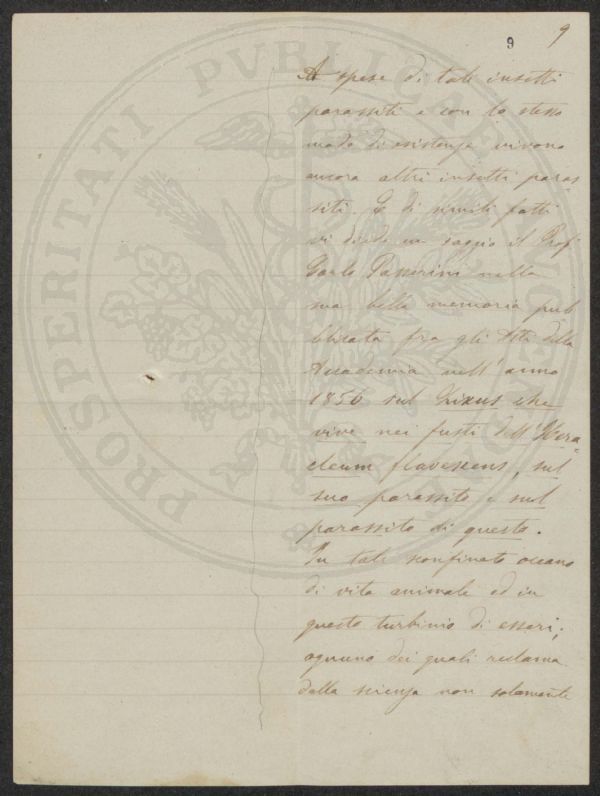 9 9
A spese di tali insetti
parassiti e con lo stesso
modo di esistenza vivono
ancora altri insetti paras
siti. E di simili fatti
vi diede un saggio il Prof.
Carlo Passerini nella
sua bella memoria pub
blicata fra gli Atti della
Accademia nell'anno
1856 sul Lixus che
vive nei fusti dell'Hera-
cleum flavescens, sul
suo parassito e sul
parassito di questo.
In tale sconfinato oceano
di vita animale ed in
questo turbinio di esseri,
ognuno dei quali reclama
dalla scienza non solamente
PROSPERITATI PVBLICAE